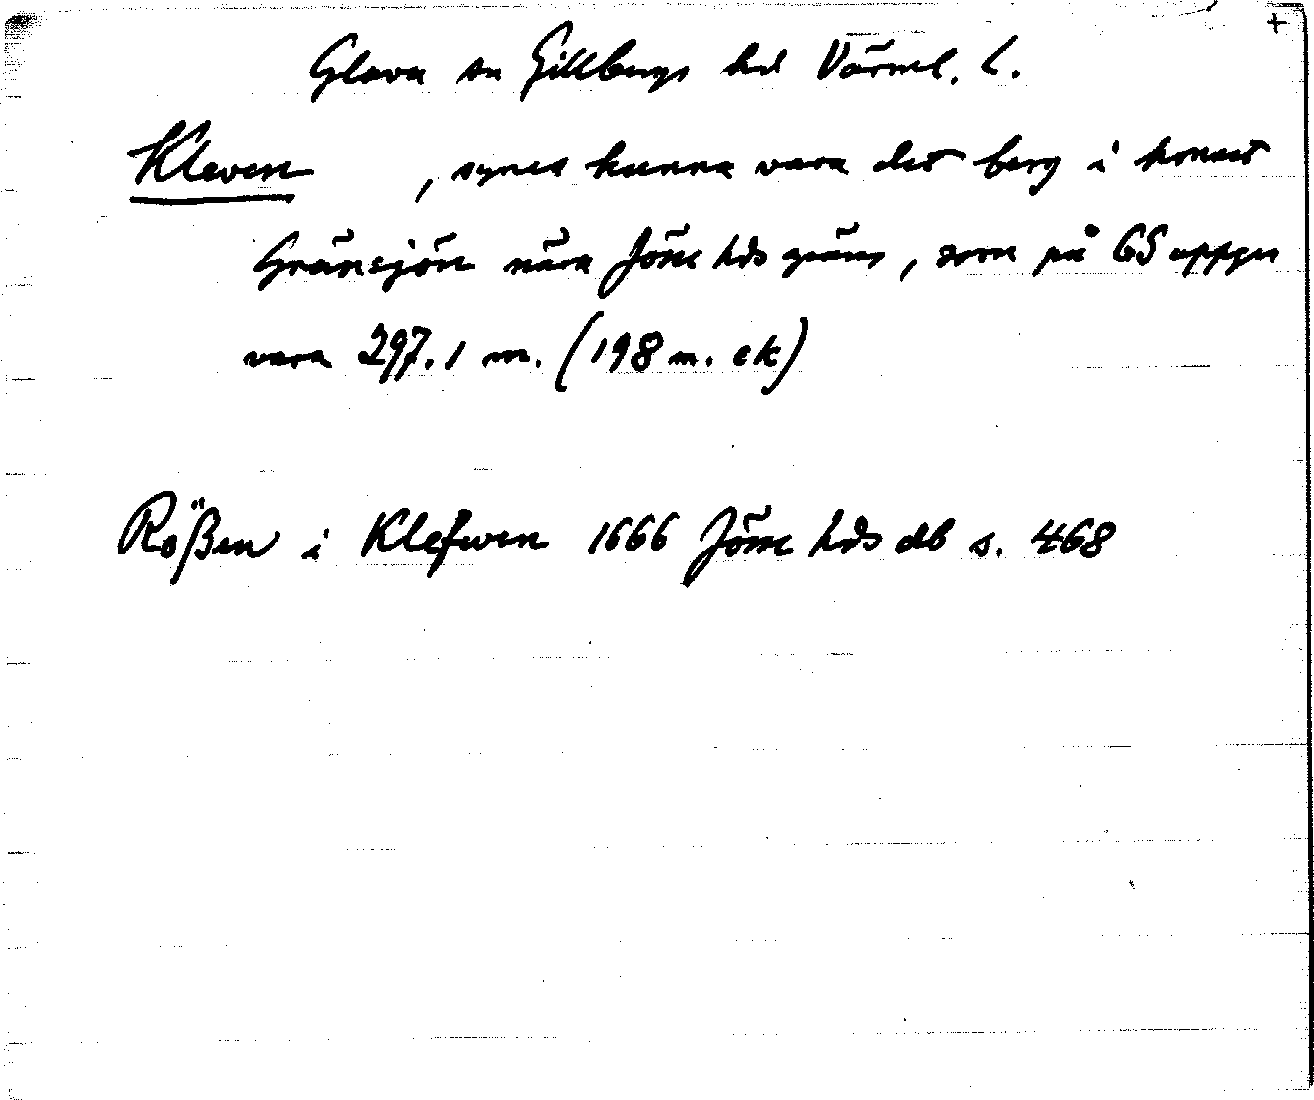 +
Glava sn Gillbergs hd Värml. l.
Kleven , synes kunna vara det berg i hemmet
Gränsjön nära Jösse hds gräns, som på GS uppges
vara 297.1 m. (198 m. ek)
Rößen i Klefwen 1666 Jösse hds db s. 468